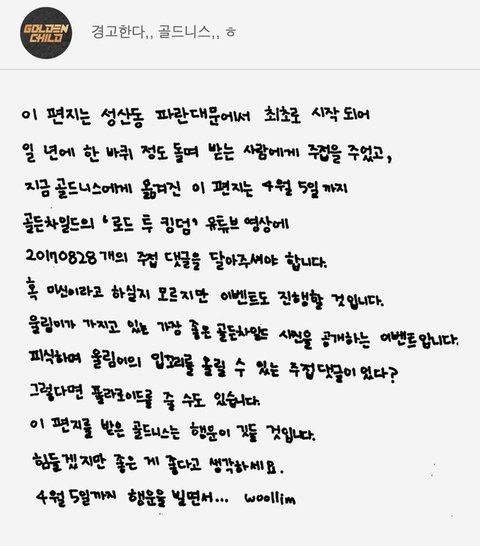 GOLDEN
CHILD
경고한다,, 골드니스,, ㅎ
이 편지는 성산동 파란대문에서 최초로 시작 되어
일 년에 한 바퀴 정도 돌며 받는 사람에게 주접을 주었고,
지금 골드니스에게 옮겨진 이 편지는 4월 5일 까지
골든차일드의 '로드 투 킹덤' 유튜브 영상에
20170828개의 주접 댓글을 달아주셔야 합니다.
혹 미신이라고 하실지 모르지만 이벤트도 진행할 것입니다.
울림이가 가지고 있는 가장 좋은 골든차일드 사진을 공개하는 이벤트입니다.
피식하며 울림이의 입꼬리를 올릴 수 있는 주접댓글이 있다?
그렇다면 폴라로이드를 줄 수도 있습니다.
이 편지를 받은 골드니스는 행운이 깃들 것입니다.
힘들겠지만 좋은 게 좋다고 생각하세요.
4월 5일까지 행운을 빌면서... woollim